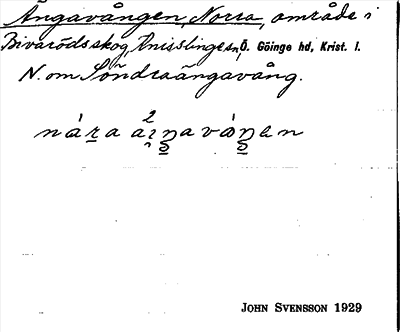 Ängavången, Norra, område i
Bivarödsskog, Knisslingesn, Ö. Göinge hd, Krist. l.
N. om Söndraängavång.
JOHN SVENSSON 1929